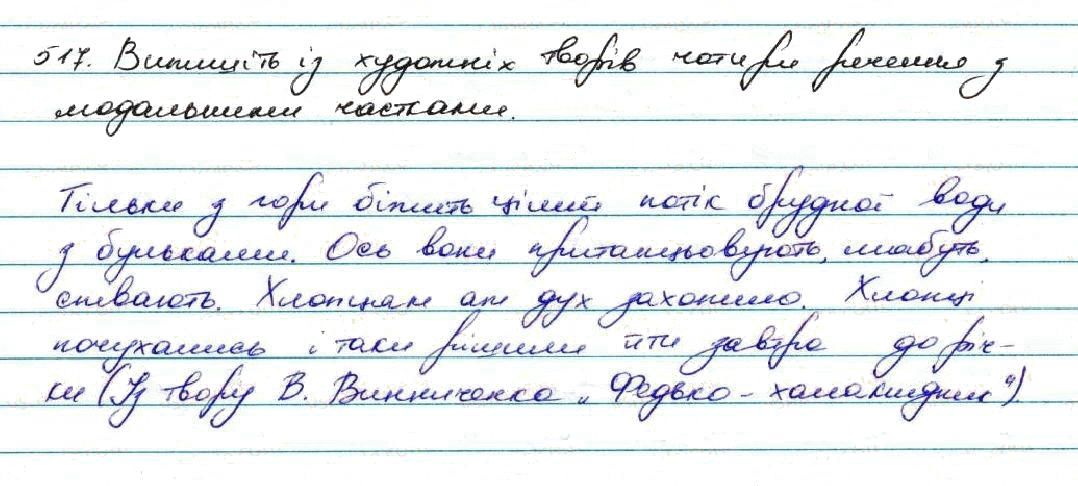 517. Випишіть із художніх творів чотири речення з
модальними частками.
Тільки з гори біжить цілий потік брудної води
з бульками. Ось вони пританцьовують, мабуть,
співають. Хлопцям аж дух захопило. Хлопці
почухались і таки рішили йти завтра до річ-
ки (Із твору В. Винниченка „Федько-халамидник")